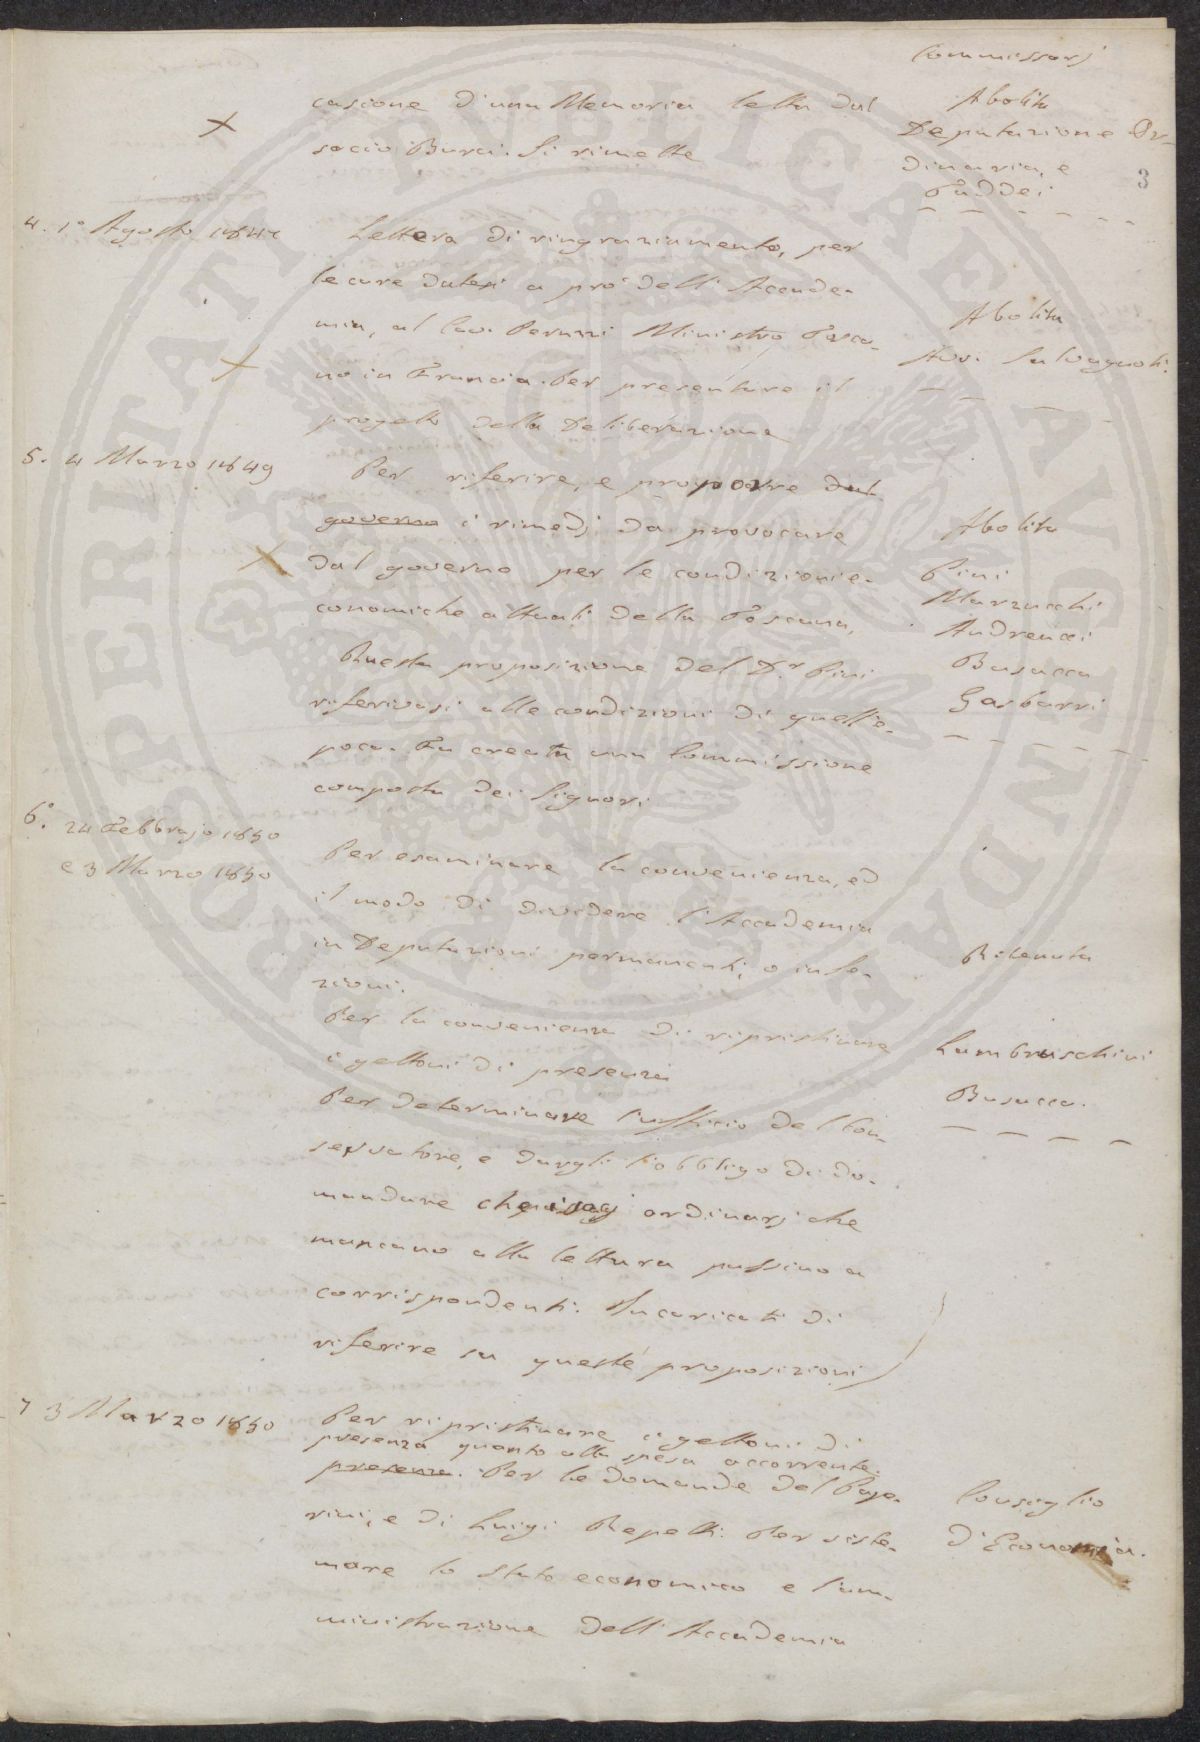 Commissarj
casione d'una Memoria letta dal
socio Burci. Si rimette
Abolita
Deputazione Or-
dinaria, e
Taddei
3
4. 1° Agosto 184
Lettera di ringraziamento, per
le cure datesi a pro' dell'Accade-
mia, al Cav. Peruzzi Ministro Tosca-
no in Francia. Per presentare il
progetto della Deliberazione
Abolita
Avv. Salvagnoli
5. 4 Marzo 1849
Per riferire, e proporre dal
governo i rimedj da provocare
dal governo per le condizioni e-
conomiche attuali della Toscana,
Questa proposizione del D.r Pini
riferivasi alle condizioni di quell'e-
poca. Fu creata una Commissione
composta dei Signori
Abolita
Pini
Marzucchi
Andreucci
Busacca
Garbarri
6° 24 Febbrajo 1850
e 3 Marzo 1850
Per esaminare la convenienza, ed
il modo di dividere l'Accademia
in Deputazioni permanenti, o in Se-
zioni.
Per la convenienza di ripristinare
i gettoni di presenza
Per determinare l'uffizio del Con-
servatore, e dargli l'obbligo di do-
mandare che i socj ordinarj che
mancano alla lettura passino a
corrispondenti. Incaricati di
riferire su queste proposizioni
Ritenuta
Lambruschini
Busacca.
7 3 Marzo 1850
Per ripristinare i gettoni di
presenza quanto alla spesa occorrente.
presenza. Per le domande del Page-
rini, e di Luigi Repetti. Per siste-
mare lo stato economico e l'am-
ministrazione dell'Accademia
Consiglio
d'Economia.
PROSPERITATI PVBLICAE AVGENDAE